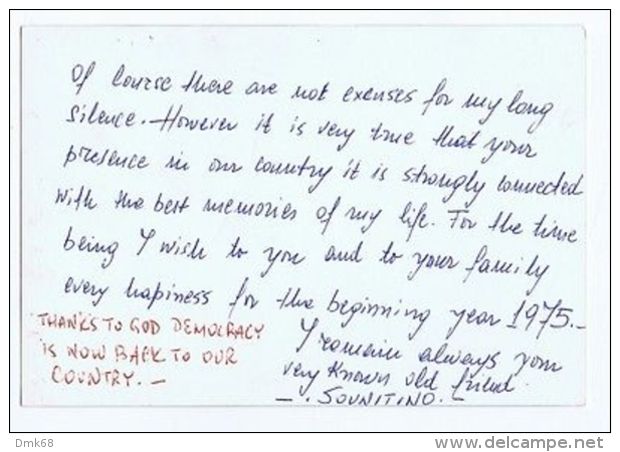 Of course there are not exenses for my long
silence. - However it is very true that your
presence in our country it is strongly connected
with the best memories of my life. For the time
being I wish to you and to your family
every hapiness for the beginning year 1975.-
THANKS TO GOD DEMOCRACY
IS NOW BACK TO OUR
COUNTRY. -
I remain always your
very known old friend.
- . SOUNITINO. -
Dmk68
delcampe.net